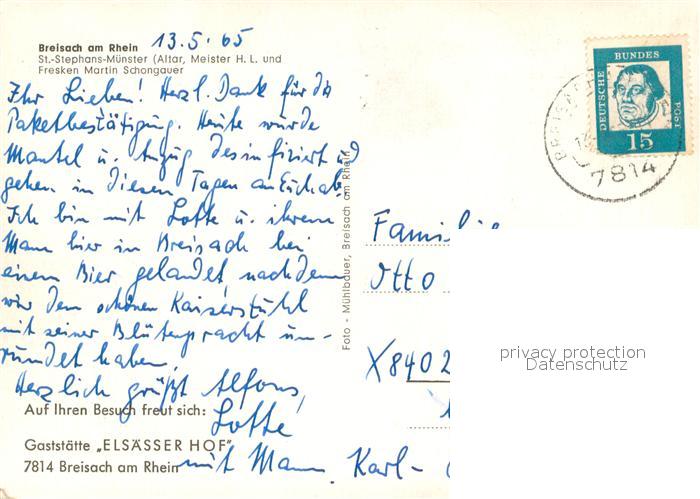 Breisach am Rhein 13.5.65
St.-Stephans-Münster (Altar, Meister H. L. und
Fresken Martin Schongauer
Ihr Lieben! Herzl. Dank für die
Paketbestätigung. Heute wurde
Mantel u. Anzug desinfiziert u
gehen in diesen Tagen an Euch ab.
Ich bin mit Lotte u. ihrem
Mann hier in Breisach bei
einem Bier gelandet nachdem
wir den schönen Kaiserstuhl
mit seiner Blütenpracht um-
rundet haben.
Herzlich grüßt Alfons,
Lotte
mit Mann Karl-
Auf Ihren Besuch freut sich:
Gaststätte „ELSÄSSER HOF"
7814 Breisach am Rhein
Foto - Mühlbauer, Breisach am Rhein
DEUTSCHE BUNDES POST
15
7814
Familie
Otto
X8402
privacy protection
Datenschutz